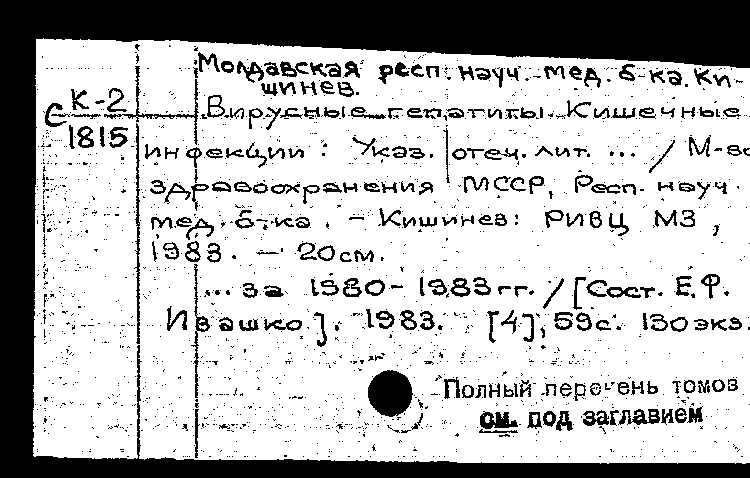 Молдавская респ. науч. мед. б-ка. Ки-
шинев.
Є К-2
1815
Вирусные гепатиты. Кишечные
инфекции : Указ. отеч. лит. ... / М-во
здравоохранения МССР, Респ. науч.
мед. б-ка. - Кишинев: РИВЦ МЗ ,
1983. — 20см.
... за 1980-1983гг. / [Сост. Е.Ф.
Ивашко]. 1983. [4], 59с. 130экз.
Полный перечень томов
см. под заглавием